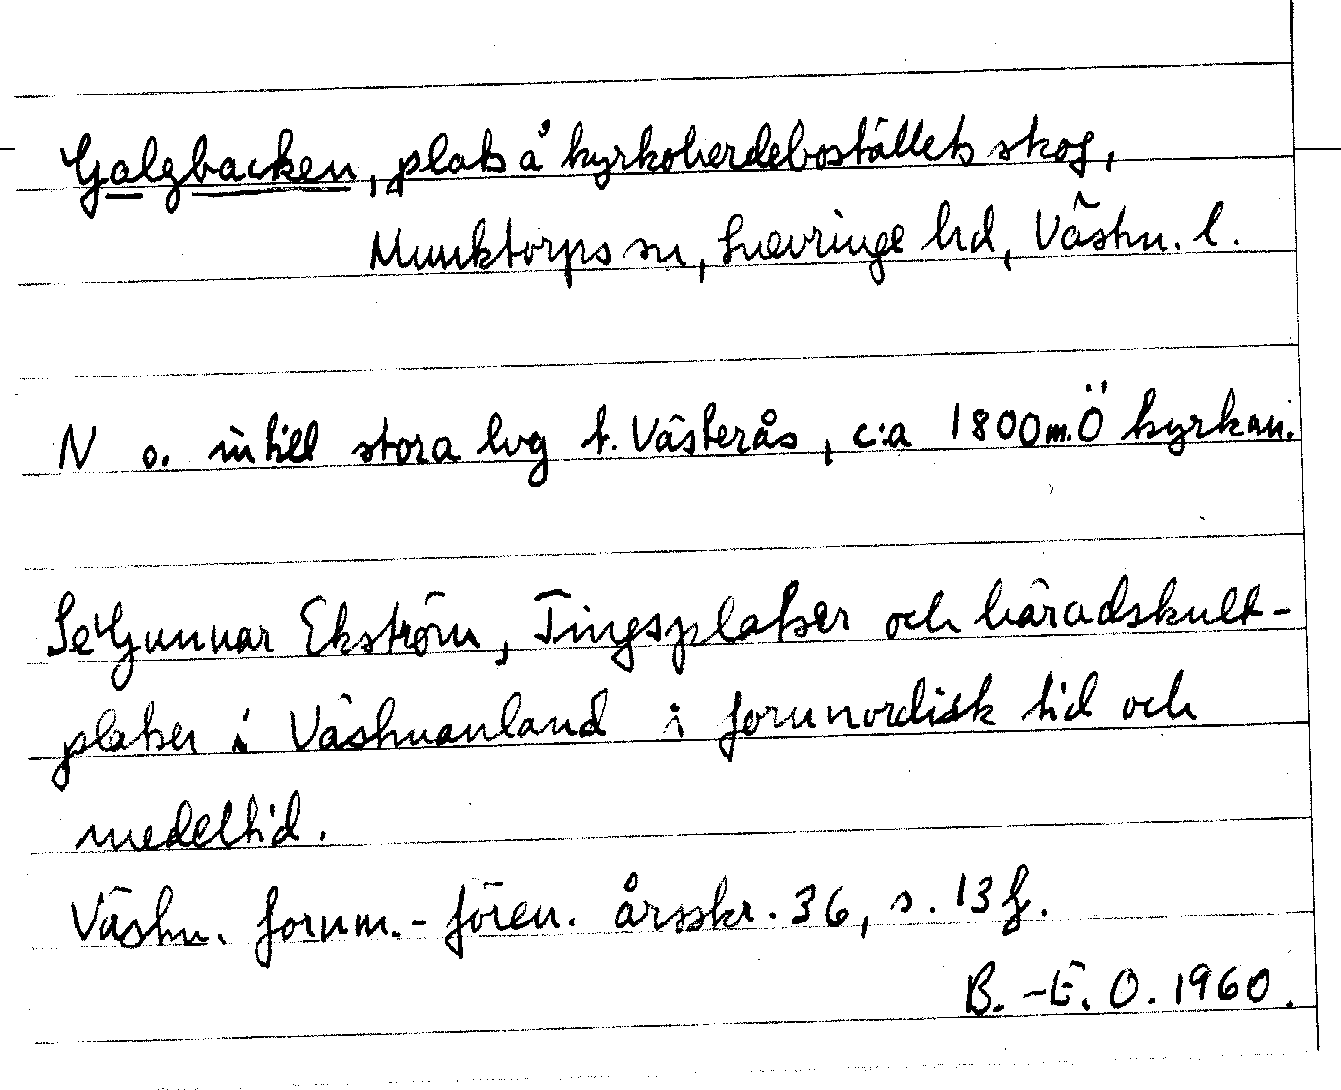 Galgbacken, plats å kyrkoherdeboställets skog,
Munktorps sn, Snevringe hd, Västm. l.
N o. intill stora lvg t. Västerås, c:a 1800 m. Ö kyrkan.
Se Gunnar Ekström, Tingsplatser och häradskult-
platser i Västmanland i fornnordisk tid och
medeltid.
Västm. fornm.-fören. årsskr. 36, s. 13 f.
B.-E. O. 1960.